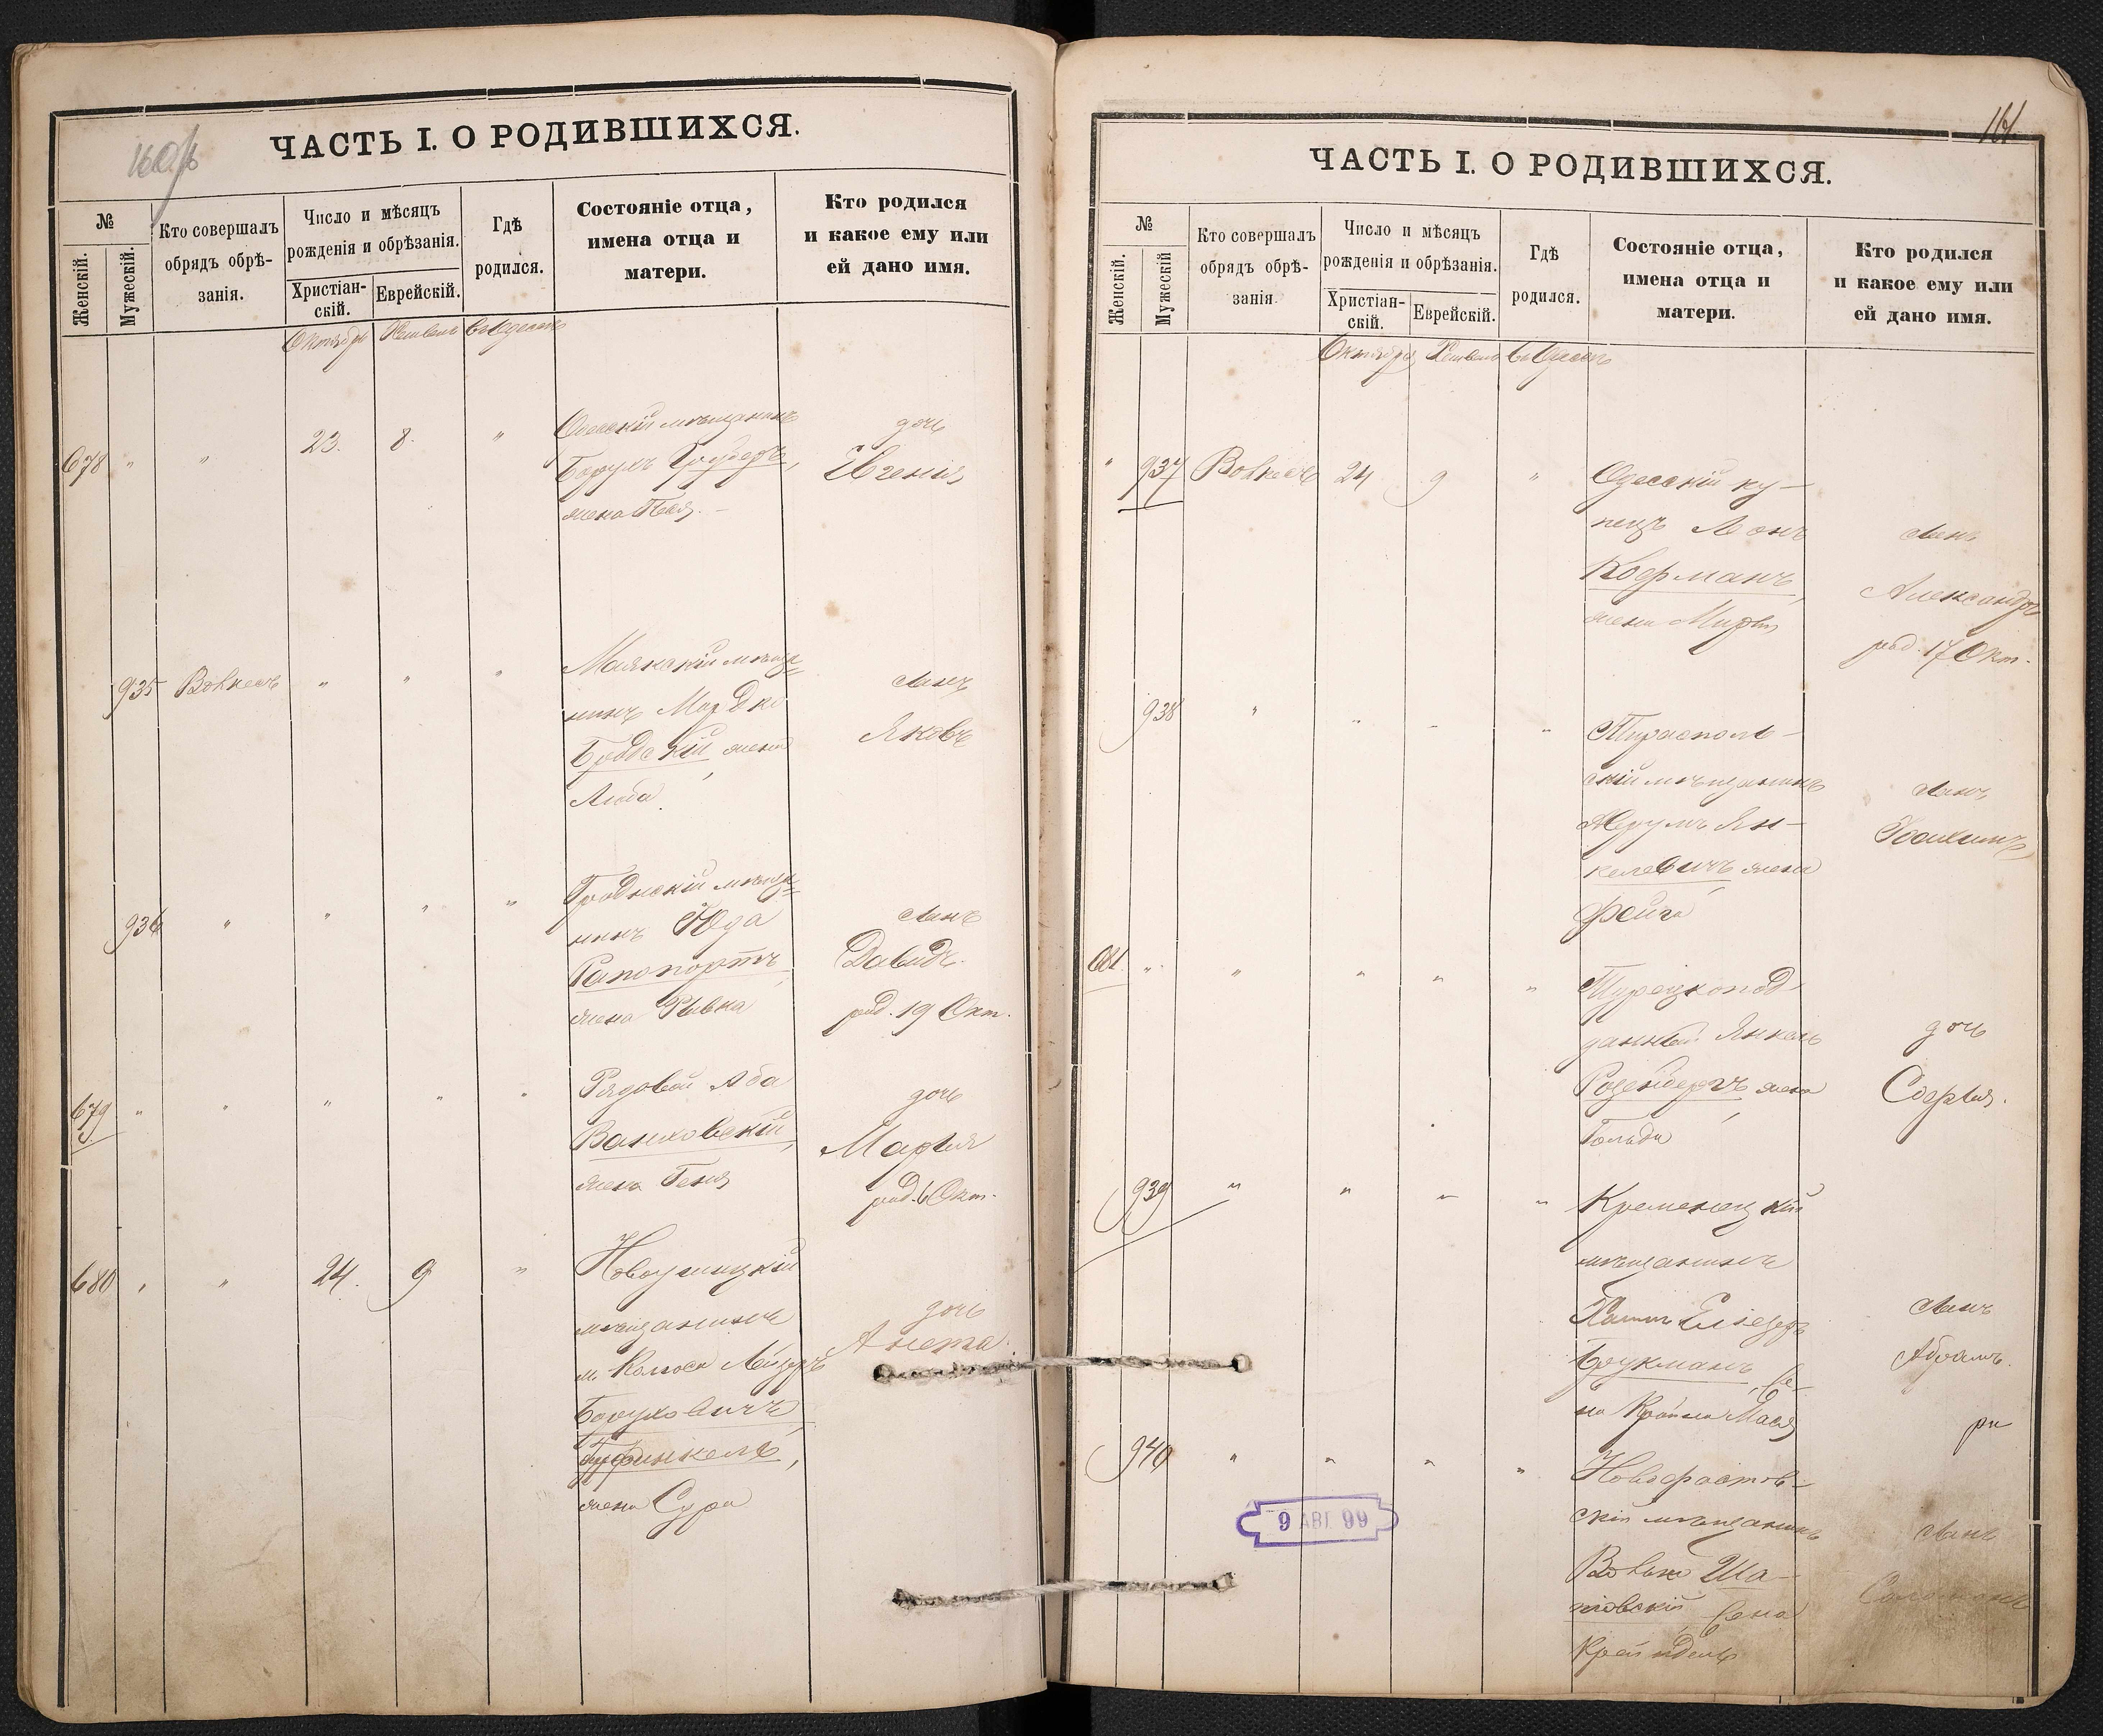 160/6
ЧАСТЬ I. О РОДИВШИХСЯ.
№
Женскій.
Мужескій.
Кто совершалъ
обрядъ обрѣ-
занія.
Число и мѣсяцъ
рожденія и обрѣзанія.
Христіан-
скій.
Еврейскій.
Гдѣ
родился.
Состояніе отца,
имена отца и
матери.
Кто родился
и какое ему или
ей дано имя.
Октябрь Хешванъ въ Одессѣ
678 " " 23. 8. "
Одесскій мѣщанинъ
Борухъ
жена Песя. —
дочь
Евгенія
935 Вовкесъ " " "
Маякскій мѣща=
нинъ Мордко
Бродскій жена
Люба.
сынъ
Яковъ
936 " " " "
Гродненскій мѣща=
нинъ Юда
Рапопортъ,
жена Ривка
сынъ
Давидъ.
род. 19 Окт.
679 " " " " "
Рядовой Аба
Ваньковскій,
жена Геня
дочь
Марія
род. 6 Окт.
680 " " 24. 9 "
Новоушицкій
мѣщанинъ
м. Калюса Лейзеръ
Боруховичъ
Гарфинкель,
жена Сура
дочь
Анета.
161
ЧАСТЬ I. О РОДИВШИХСЯ.
№
Женскій.
Мужескій
Кто совершалъ
обрядъ обрѣ-
занія.
Число и мѣсяцъ
рожденія и обрѣзанія.
Христіан-
скій.
Еврейскій.
Гдѣ
родился.
Состояніе отца,
имена отца и
матери.
Кто родился
и какое ему или
ей дано имя.
Октябрь Хешванъ въ Одессѣ
" 937 Вовкесъ 24 9 "
Одесскій ку—
пецъ Леонъ
Кофманъ,
жена Марія
сынъ
Александръ
род. 17 Окт.
938 " " " "
Тирасполь—
скій мѣщанинъ
Нерумъ Ян—
келевичъ жена
Фейга
сынъ
Іоахимъ
681. " " " " "
Турецкопод-
данный Янкель
Розенбергъ жена
Гольда
дочь
Софія.
939 " " " "
Кременецкій
мѣщанинъ
Хаимъ Еліезеръ
Брукманъ, же-
на Крейна Мася
сынъ
Абрамъ.
940 " " " "
Новофастов—
скій мѣщанинъ
Вовко Ша—
повскій жена
Крейндель
сынъ
Соломонъ
9 АВГ 99